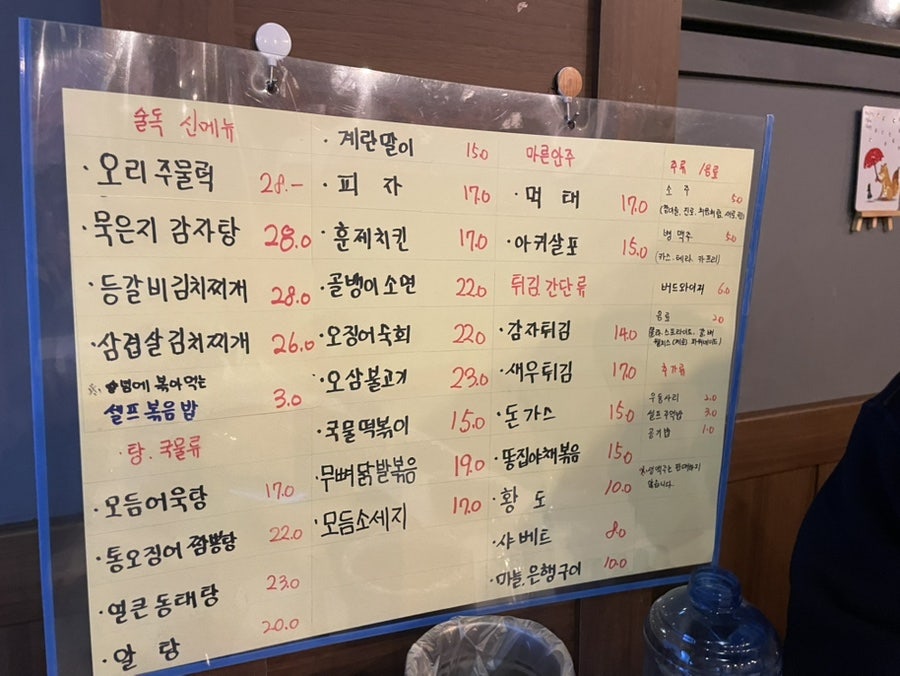 술독 신메뉴
·오리 주물럭 28.-
·묵은지 감자탕 28.0
·등갈비김치찌개 28.0
·삼겹살김치찌개 26.0
볶아먹는
셀프볶음밥 3.0
·탕.국물류
·모듬어묵탕 17.0
·통오징어 짬뽕탕 22.0
·얼큰동태탕 23.0
·알 탕 20.0
·계란말이 15.0
·피 자 17.0
·훈제치킨 17.0
·골뱅이소면 22.0
·오징어숙회 22.0
·오삼불고기 23.0
·국물떡볶이 15.0
·무뼈닭발볶음 19.0
·모듬소세지 17.0
마른안주
·먹 태 17.0
·아귀살포 15.0
튀김.간단류
·감자튀김 14.0
·새우튀김 17.0
·돈가스 15.0
·똥집야채볶음 15.0
·황 도 10.0
·샤베트 8.0
·마늘.은행구이 10.0
주류 /음료
소 주 5.0
병 맥주 5.0
(카스.테라.카프리)
버드와이저 6.0
음료 2.0
추가류
우동사리 2.0
셀프주먹밥 3.0
공기밥 1.0
않습니다.